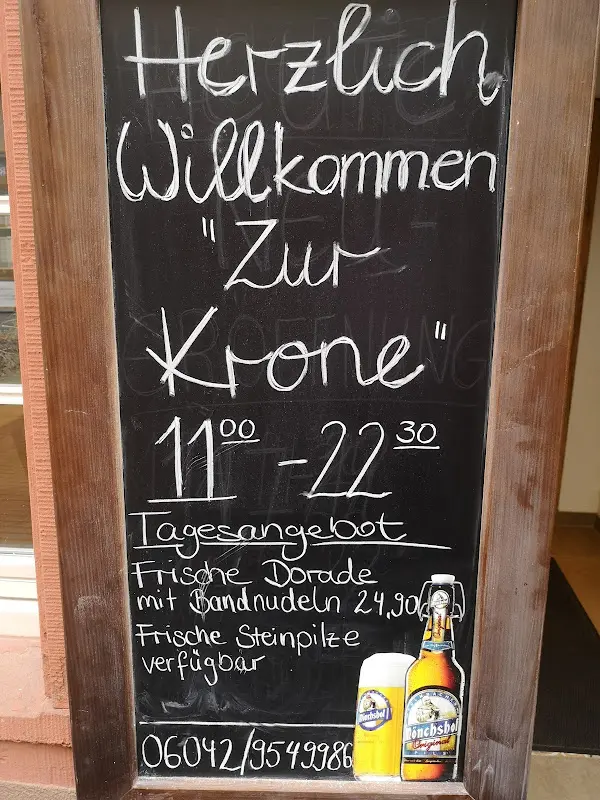 Herzlich
Willkommen
"Zur
Krone"
11⁰⁰ - 22³⁰
Tagesangebot
Frische Dorade
mit Bandnudeln 24,90
Frische Steinpilze
verfügbar
06042/9549986
Mönchshof
Mönchshof
Original